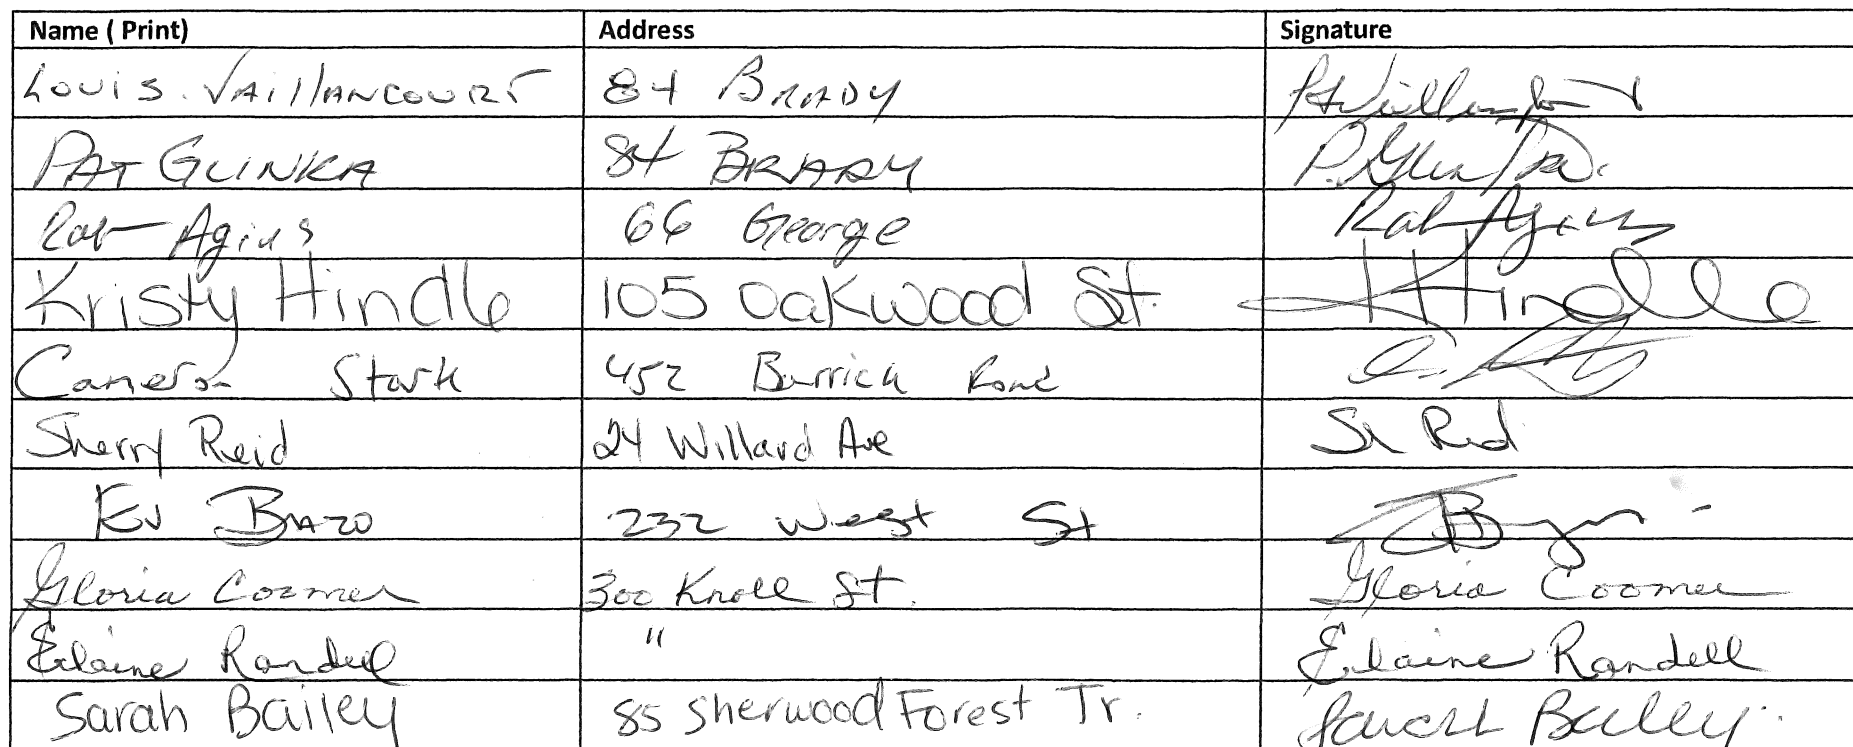 Name ( Print) Address Signature
Louis Vaillancourt 84 Brady
Pat Glinka 84 Brady P. Glinka
Rob Agius 66 George Rob Agius
Kristy Hindle 105 Oakwood St. K Hindle
Cameron Stark 452 Barrick Road
Sherry Reid 24 Willard Ave
Ev Bazo 232 West St
Gloria Coomer 300 Knoll St. Gloria Coomer
Elaine Randell " Elaine Randell
Sarah Bailey 85 Sherwood Forest Tr. Sarah Bailey